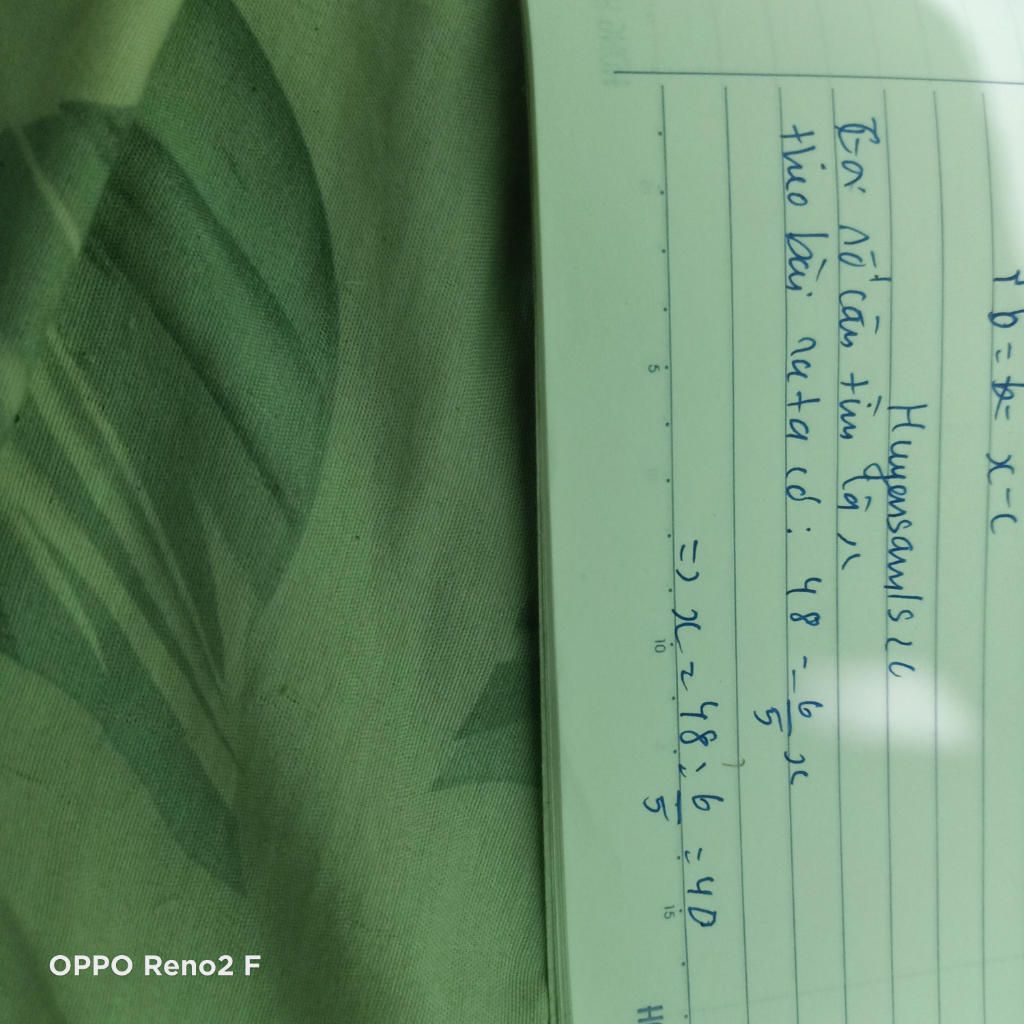 b = b = x - c
Huyensam1s2c
Gọi số cần tìm là x
theo bài ra ta có : 48 = 6/5 x
=> x = 48 : 6/5 = 40
5
10
15
OPPO Reno2 F